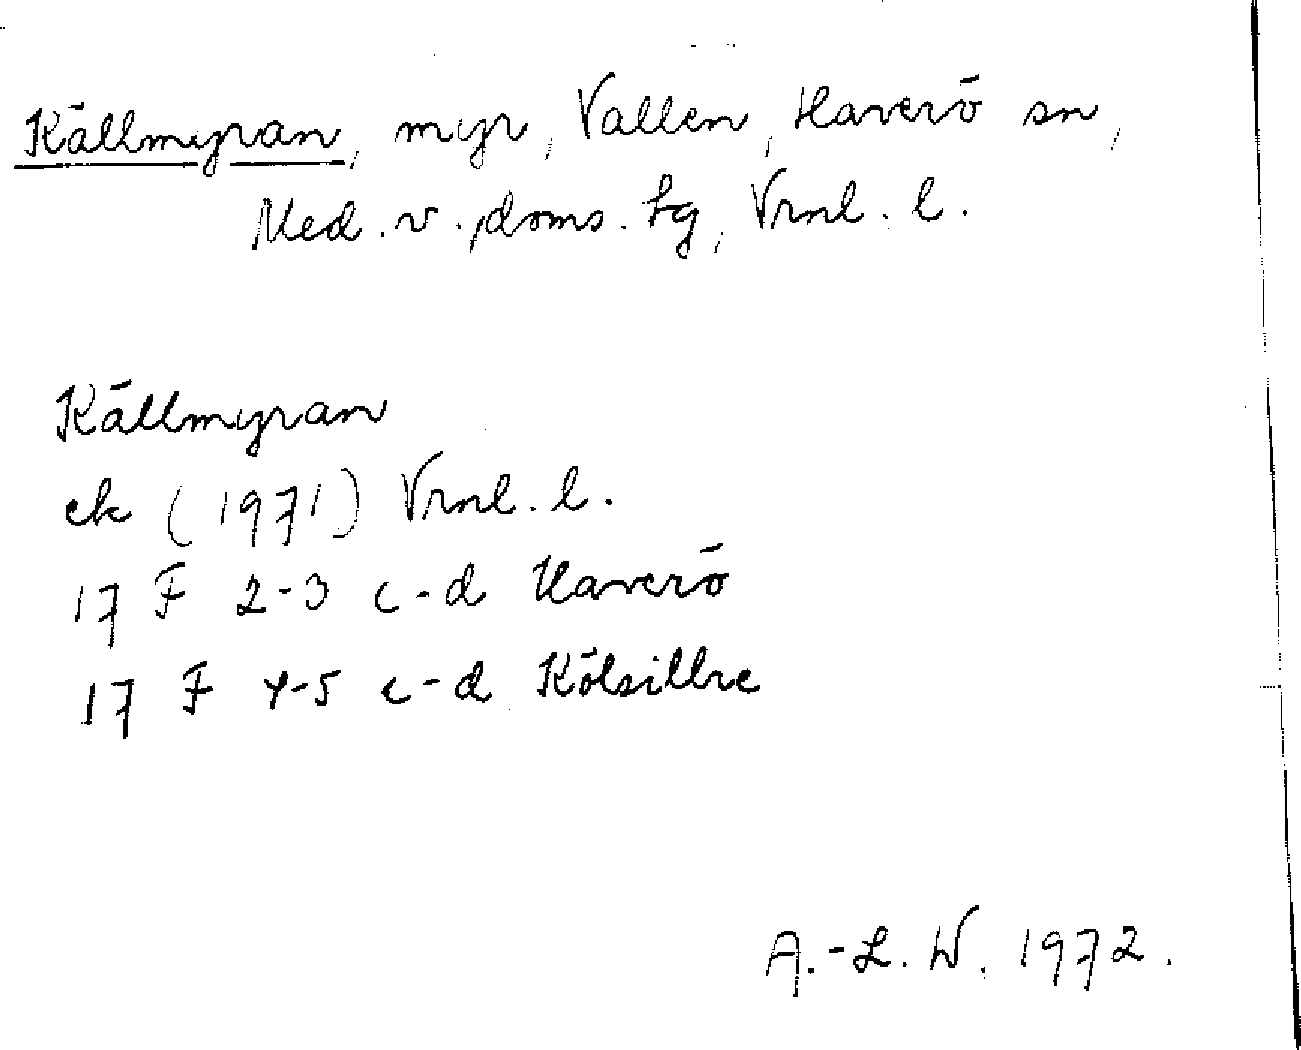 Källmyran, myr, Vallen, Haverö sn,
Med. v. doms. tg, Vrnl. l.
Källmyran
ek (1971) Vrnl. l.
17 F 2-3 c-d Haverö
17 F 4-5 c-d Kölsillre
A.-L. W. 1972.